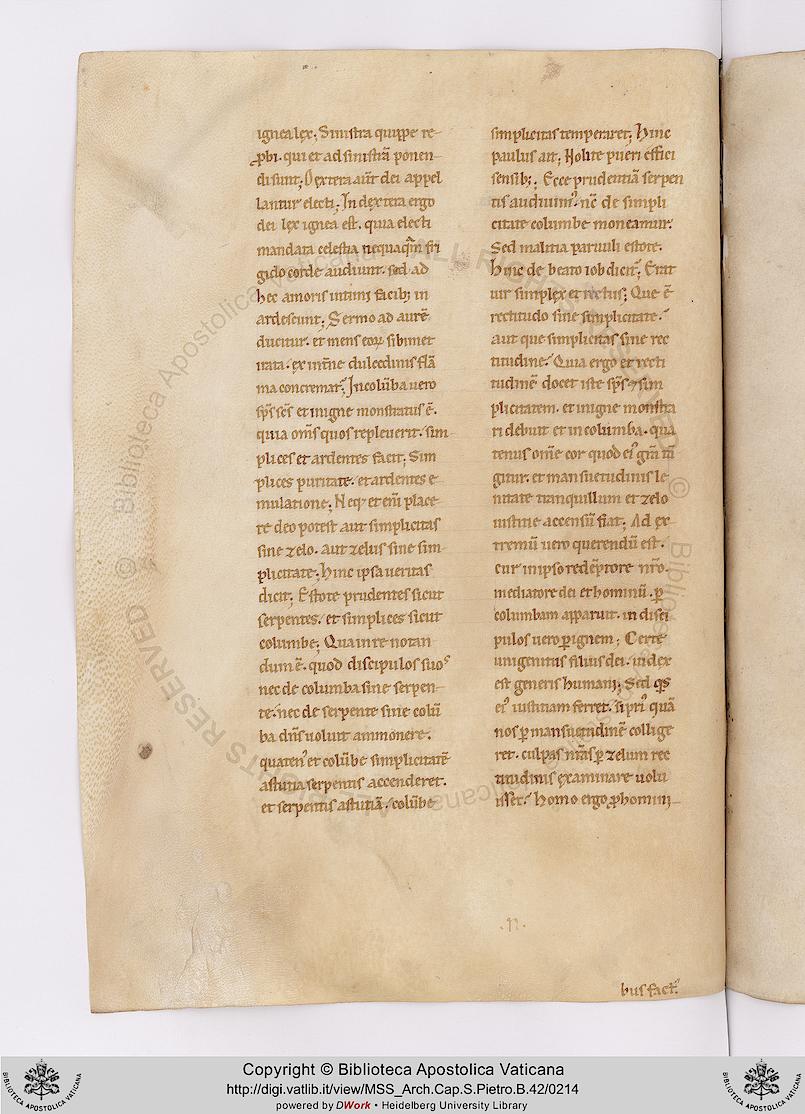 ignea lęx; Sinistra quippe re-
ꝓbi. qui et ad sinistrā ponen-
di sunt; Dęxtera aūt dei appel
lantur electi; In dęxtera ergo
dei lęx ignea est. quia electi
mandata cęlestia nequaqᷓm fri
gido corde audiunt. sed ad
hec amoris intimi facib; in
ardescunt; Sermo ad aurē
ducitur. et mens eoꝝ sibimet
irata. ęx intīne dulcedinis flā
ma concremat᷑; In colūba uero
sp̄s sc̄s et in igne monstratus ē.
quia om̄s quos repleuerit. sim
plices et ardentes facit; Sim
plices puritate. et ardentes ę
mulatione; Neq; et eni̅ place
re deo potest aut simplicitas
sine zelo. aut zelus sine sim
plicitate; Hinc ipsa ueritas
dicit; Estote prudentes sicut
serpentes. et simplices sicut
columbe; Qua in re notan
dum ē. quod discipulos suoˢ
nec de columba sine serpen-
te. nec de serpente sine colū
ba dn̄s uoluit ammonere.
quaten᾽ et colūbe simplicitatē
astutia serpentis accenderet.
et serpentis astutiā. colūbe
simplicitas temperaret; Hinc
paulus ait; Nolite pueri effici
sensib;; Ecce prudentiā serpen
tis audiuim᾽. nc̄ de simpli
citate columbe moneamur.
Sed malitia paruuli estote.
Hinc de beato iob dicit᷑; Erat
uir simplęx et rectus; Que ē
rectitudo sine simplicitate.
aut que simplicitas sine rec
titudine. Quia ergo et recti
tudinē docet iste sp̄s ⁊ sim
plicitatem. et in igne monstra
ri debuit et in columba. qua
tenus om̄e cor quod ei᾽ grā tā
gitur. et mansuetudinis le
nitate tranquillum et zelo
iustitie accensū fiat; Ad ęx
tremū uero querendū est.
cur in ipso redēptore nr̄o.
mediatore dei et hominū. ꝑ
columbam apparuit. in disci
pulos uero ꝑ ignem; Certe
unigenitus filius dei. iudex
est generis humani; Sed qͥs
ei᾽ iustitiam ferret. si pri᾽ quā
nos ꝑ mansuetudinē collige
ret. culpas nr̄as ꝑ zelum rec
titudinis ęxaminare uolu
isset. Homo ergo ꝓ homini-
.n.
bus fact᾽.
Copyright © Biblioteca Apostolica Vaticana
http://digi.vatlib.it/view/MSS_Arch.Cap.S.Pietro.B.42/0214
powered by DWork • Heidelberg University Library
BIBLIOTECA APOSTOLICA VATICANA
BIBLIOTECA APOSTOLICA VATICANA
© Biblioteca Apostolica Vaticana ALL RIGHTS RESERVED